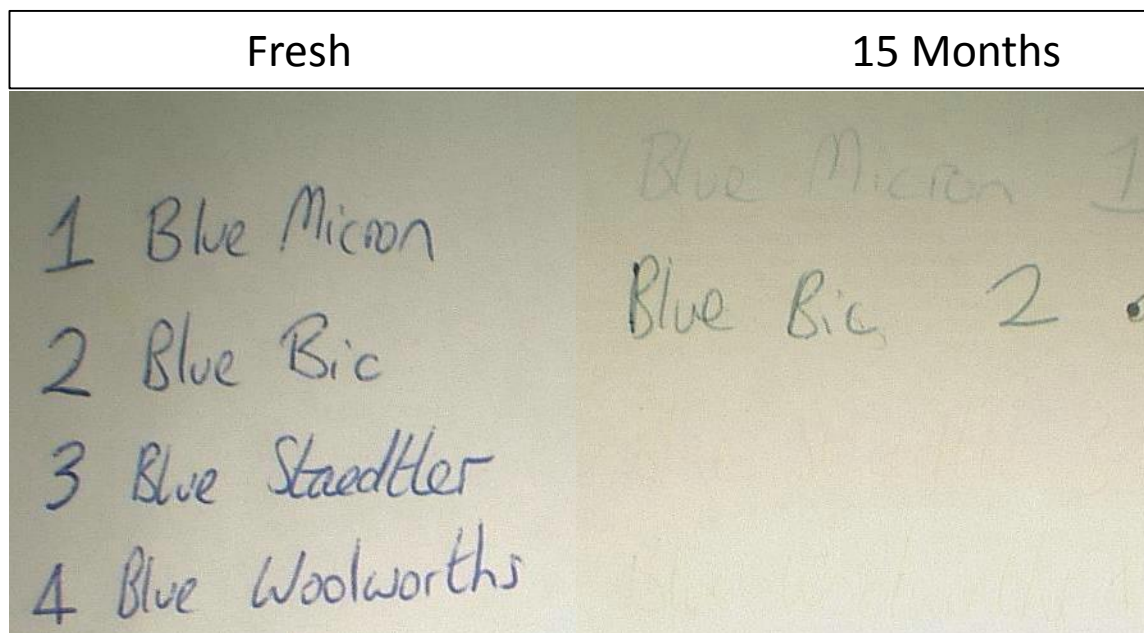 Fresh
15 Months
1 Blue Micron
2 Blue Bic
3 Blue Staedtler
4 Blue Woolworths
Blue Micron 1
Blue Bic 2